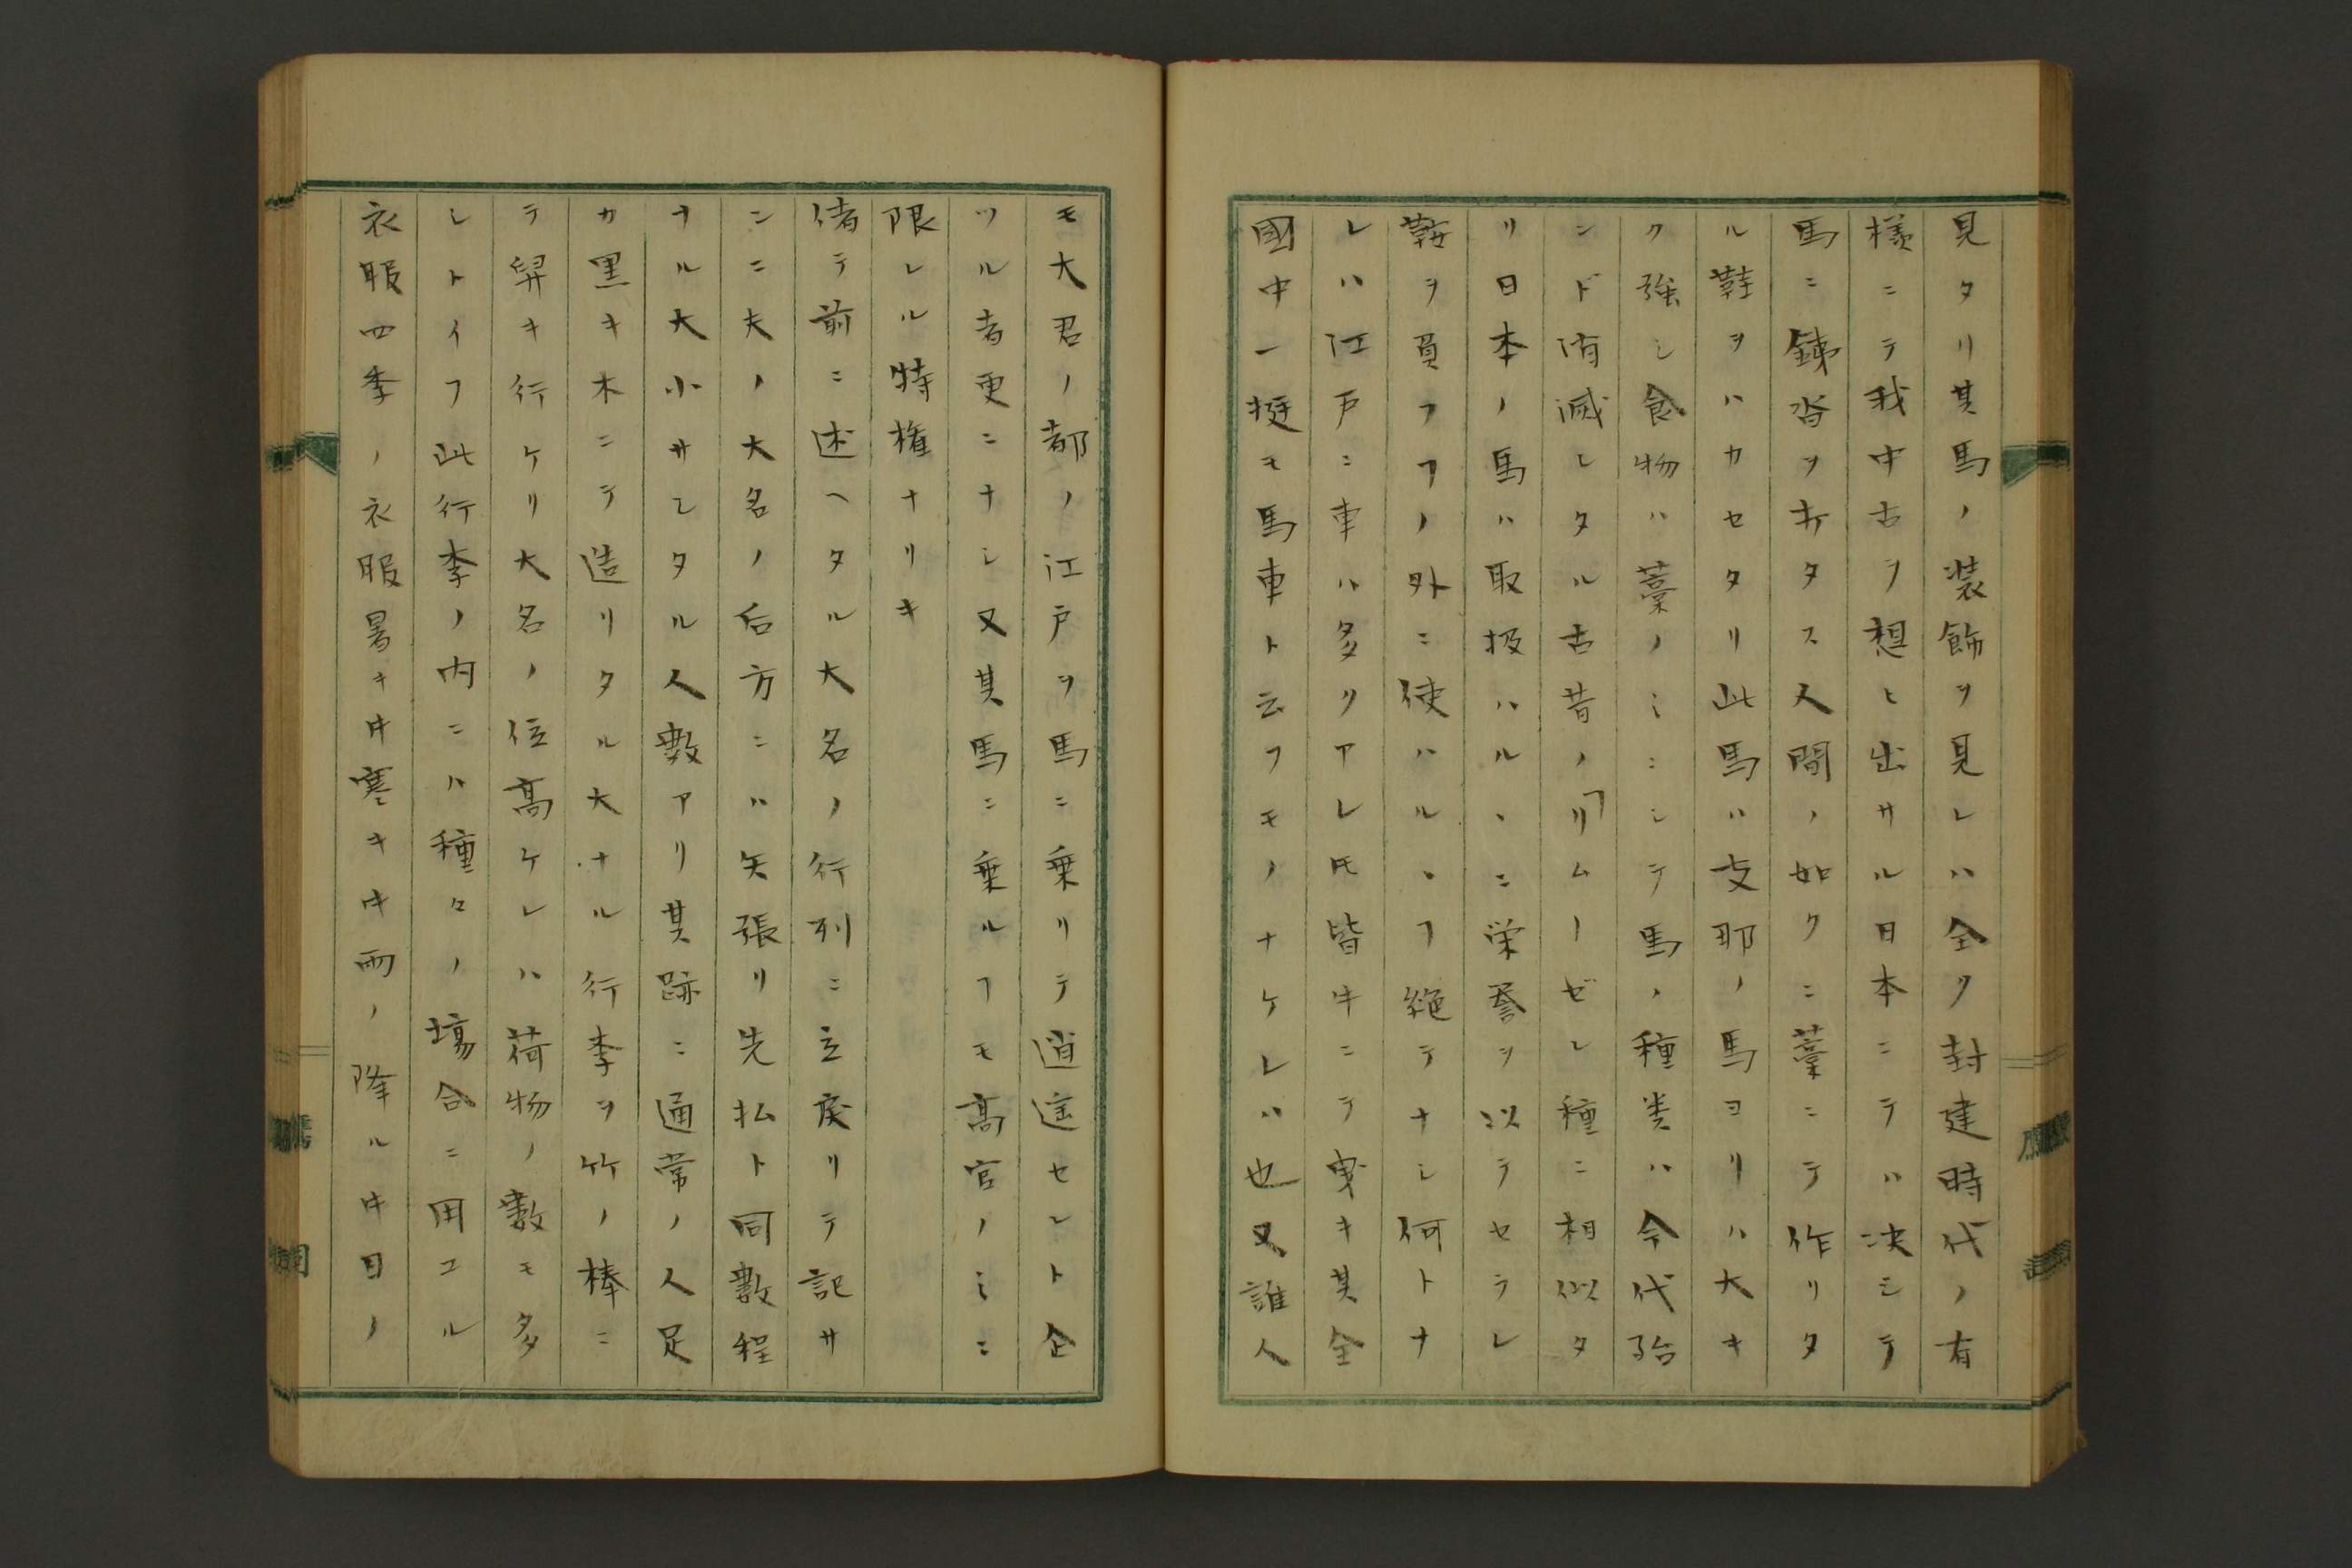 見タリ其馬ノ装飾ヲ見レハ全ク封建時代ノ有
様ニテ我中古ヲ想ヒ出サル日本ニテハ决シテ
馬ニ鐵沓ヲ打タス人間ノ如クニ藁ニテ作リタ
ル鞋ヲハカセタリ此馬ハ支那ノ馬ヨリハ大キ
ク強シ食物ハ藁ノミニシテ馬ノ種类ハ今代殆
ンド消滅シタル古昔ノ「リムーゼレ種ニ相似タ
リ日本ノ馬ハ取扱ハルヽニ栄誉ヲ以テセラレ
鞍ヲ負フヿノ外ニ使ハルヽヿ絶テナシ何トナ
レハ江戸ニ車ハ多クアレ𪜈皆牛ニテ曳キ其全
國中一挺モ馬車ト云フモノナケレハ也又誰人
モ大君ノ都ノ江戸ヲ馬ニ乗リテ逍遥セント企
ツル者更ニナシ又其馬ニ乗ルヿモ高官ノミニ
限レル特権ナリキ
偖テ前ニ述ヘタル大名ノ行列ニ立戻リテ記サ
ンニ夫ノ大名ノ后方ニハ矢張リ先払ト同數程
ナル大小サシタル人數アリ其跡ニ通常ノ人足
カ黒キ木ニテ造リタル大ナル行李ヲ竹ノ棒ニ
テ舁キ行ケリ大名ノ位高ケレハ荷物ノ數モ多
シトイフ此行李ノ内ニハ種々ノ塲合ニ用ユル
衣服四季ノ衣服暑キ㪽寒キ㪽雨ノ降ル㪽日ノ